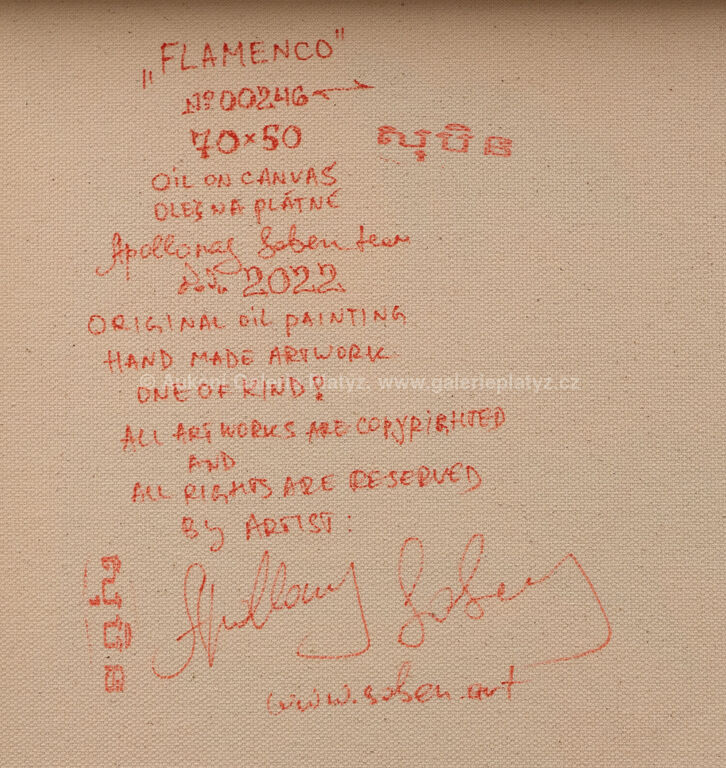 „FLAMENCO"
Nº 00246
70×50
សុបិន
OIL ON CANVAS
OLEJ NA PLÁTNĚ
Apollonas Soben team
2022
ORIGINAL OIL PAINTING
HAND MADE ARTWORK
© Aukční Galerie Platýz, www.galerieplatyz.cz
ONE OF KIND!
ALL ARTWORKS ARE COPYRIGHTED
AND
ALL RIGHTS ARE RESERVED
By ARTIST:
Apollonas Soben
សុបិន
www.soben.art